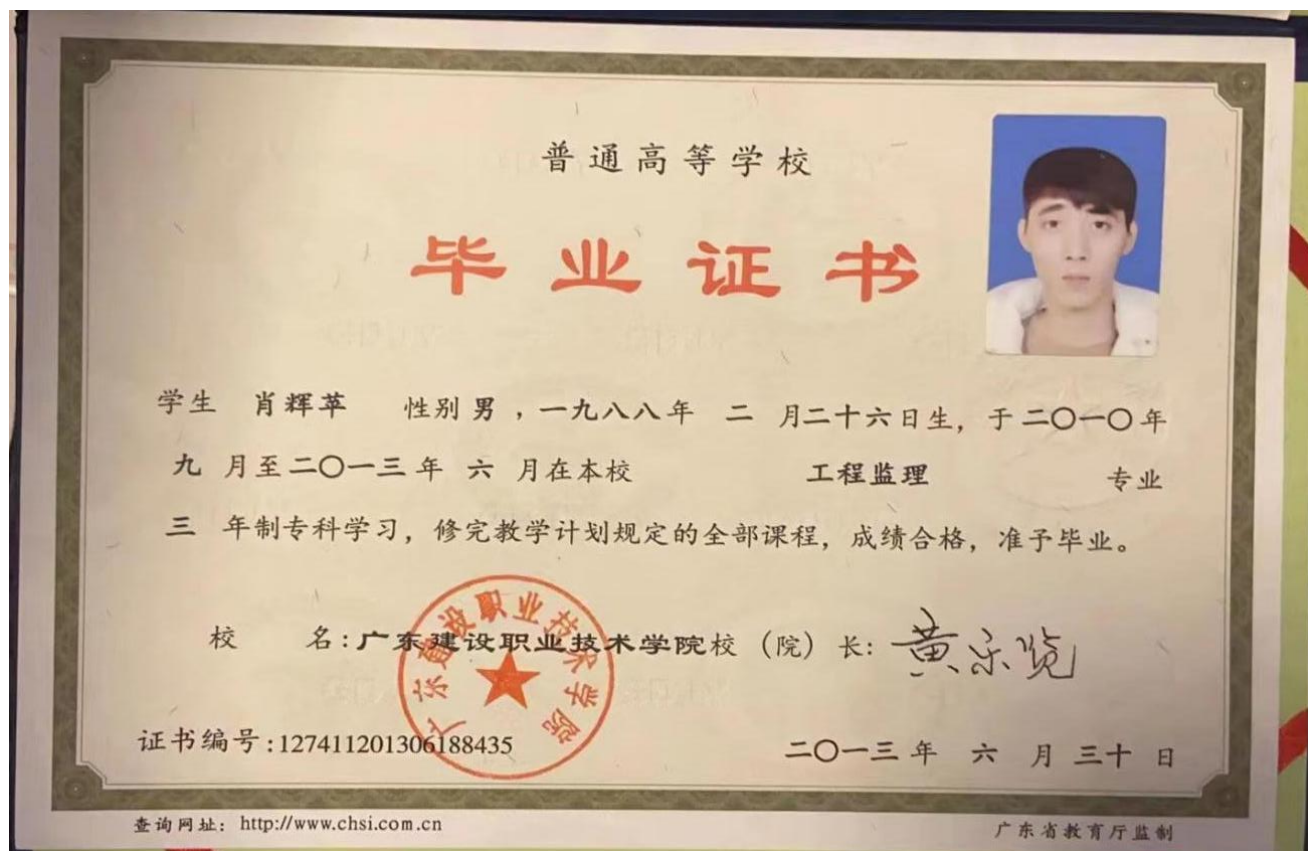 普通高等学校
毕业证书
学生 肖辉苹 性别 男 ，一九八八年 二 月二十六日生，于二〇一〇年
九 月至二〇一三年 六 月在本校 工程监理 专业
三 年制专科学习，修完教学计划规定的全部课程，成绩合格，准予毕业。
校 名：广东建设职业技术学院 校（院）长：黄乐览
广东建设职业技术学院
证书编号：127411201306188435 二〇一三年 六 月 三十 日
查询网址：http://www.chsi.com.cn 广东省教育厅监制